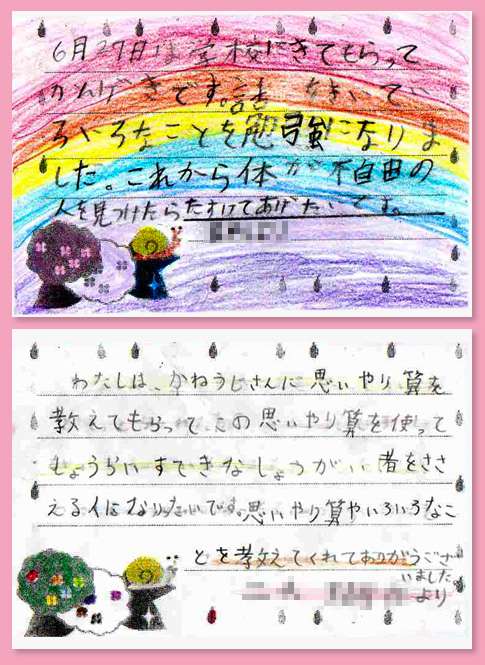 6月27日は学校にきてもらって
かんげきです。話をきいてい
ろいろなことを勉強になりま
した。これから体が不自由の
人を見つけたらたすけてあげたいです。
わたしは、かねうじさんに思いやり算を
教えてもらって、この思いやり算を使って
しょうらいすてきなしょうがい者をささ
える人になりたいです。思いやり算やいろいろなこ
とを教えてくれてありがうござ
いました
より